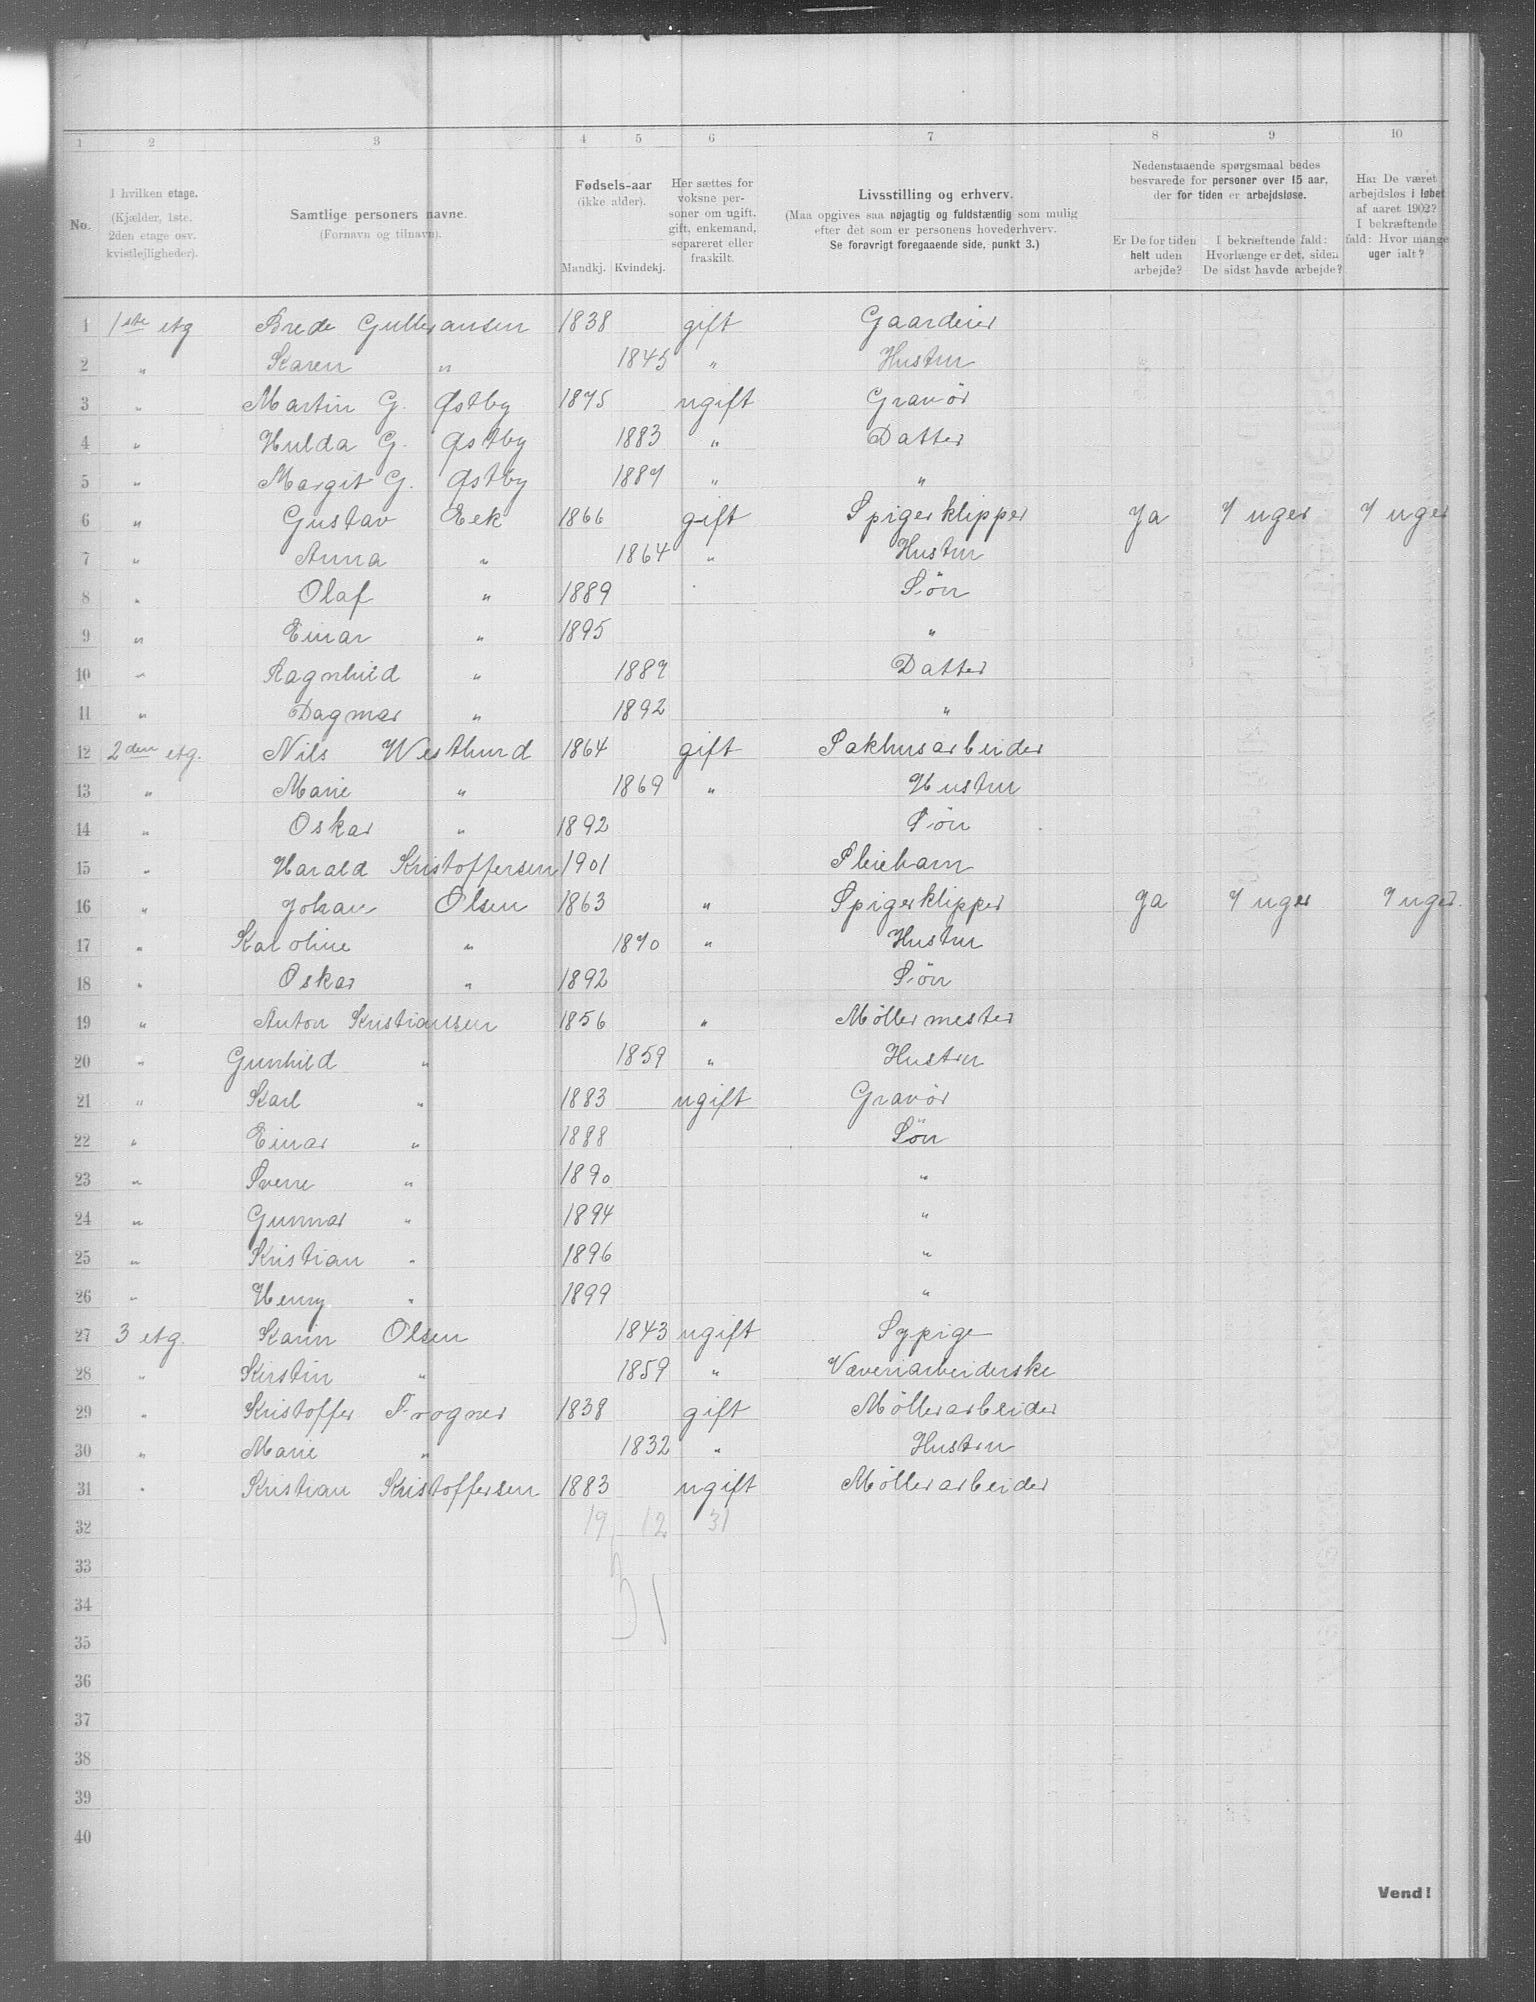 1 2 3 4 5 6 7 8 9 10
No.
I hvilken etage. (Kjælder, 1ste. 2den etage osv. kvistlejligheder).
Samtlige personers navne. (Fornavn og tilnavn).
Fødsels-aar (ikke alder). Mandkj. Kvindekj.
Her sættes for voksne personer om ugift, gift, enkemand, separeret eller fraskilt.
Livsstilling og erhverv. (Maa opgives saa nøjagtig og fuldstændig som mulig efter det som er personens hovederhverv. Se forøvrigt foregaaende side, punkt 3.)
Nedenstaaende spørgsmaal bedes besvarede for personer over 15 aar, der for tiden er arbejdsløse.
Er De for tiden helt uden arbejde?
I bekræftende fald: Hvorlænge er det, siden De sidst havde arbejde?
Har De været arbejdsløs i løbet af aaret 1902? I bekræftende fald: Hvor mange uger ialt?
1 1ste etg Brede Gulbransen 1838 gift Gaardeier
2 " Karen " 1845 " Hustru
3 " Martin G. Østby 1875 ugift Gravør
4 " Hulda G. Østby 1883 " Datter
5 " Margit G. Østby 1887 " "
6 " Gustav Eek 1866 gift Spigerklipper Ja 7 uger 7 uger
7 " Anna " 1864 " Hustru
8 " Olaf " 1889 Søn
9 " Einar " 1895 "
10 " Ragnhild " 1887 Datter
11 " Dagmar " 1892 "
12 2den etg. Nils Westlund 1864 gift Pakhusarbeider
13 " Marie " 1869 " Hustru
14 " Oskar " 1892 Søn
15 " Harald Kristoffersen 1901 Pleiebarn
16 " Johan Olsen 1863 " Spigerklipper Ja 7 uger 7 uger.
17 " Karoline " 1870 " Hustru
18 " Oskar " 1892 Søn
19 " Anton Kristiansen 1856 " Møllermester
20 " Gunhild " 1859 " Hustru
21 " Karl " 1883 ugift Gravør
22 " Einar " 1888 Søn
23 " Sverre " 1890 "
24 " Gunnar " 1894 "
25 " Kristian " 1896 "
26 " Henry " 1899 "
27 3 etg. Karin Olsen 1843 ugift Sypige
28 " Kirstin " 1859 " Væveriarbeiderske
29 " Kristoffer Frogner 1838 gift Møllerarbeider
30 " Marie " 1832 " Hustru
31 " Kristian Kristoffersen 1883 ugift Møllerarbeider
32 19 12 31
33
34 31
35
36
37
38
39
40
Vend!